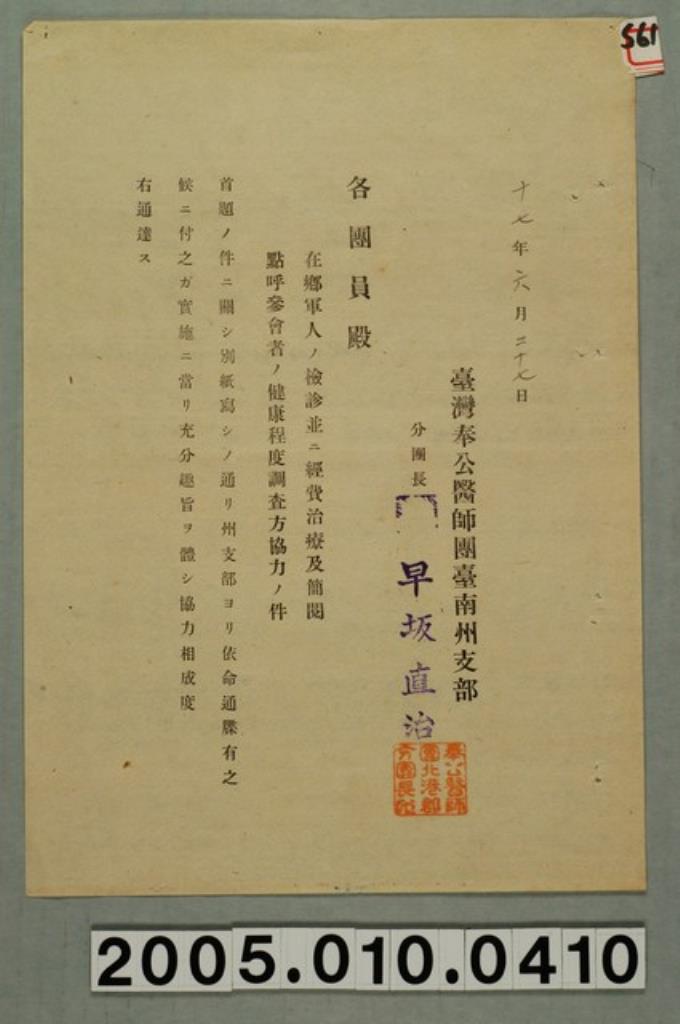 561
十七年六月二十七日
臺灣奉公醫師團臺南州支部
分團長 早坂直治
奉公醫師
團北港郡
分團長印
各團員殿
在鄉軍人ノ檢診並ニ經費治療及簡閱
點呼參會者ノ健康程度調査方協力ノ件
首題ノ件ニ關シ別紙寫シノ通リ州支部ヨリ依命通牒有之
候ニ付之ガ實施ニ當リ充分趣旨ヲ體シ協力相成度
右通達ス
2005.010.0410